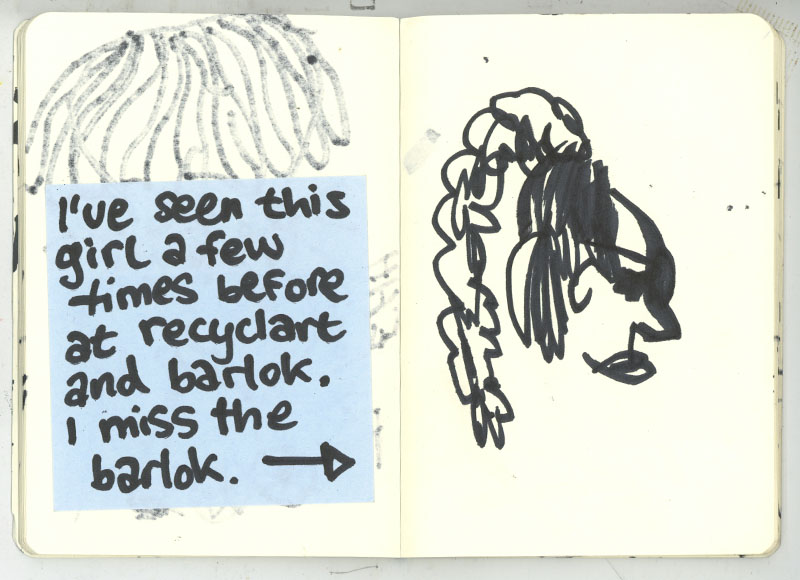 I've seen this
girl a few
times before
at recyclart
and barlok.
I miss the
barlok. →